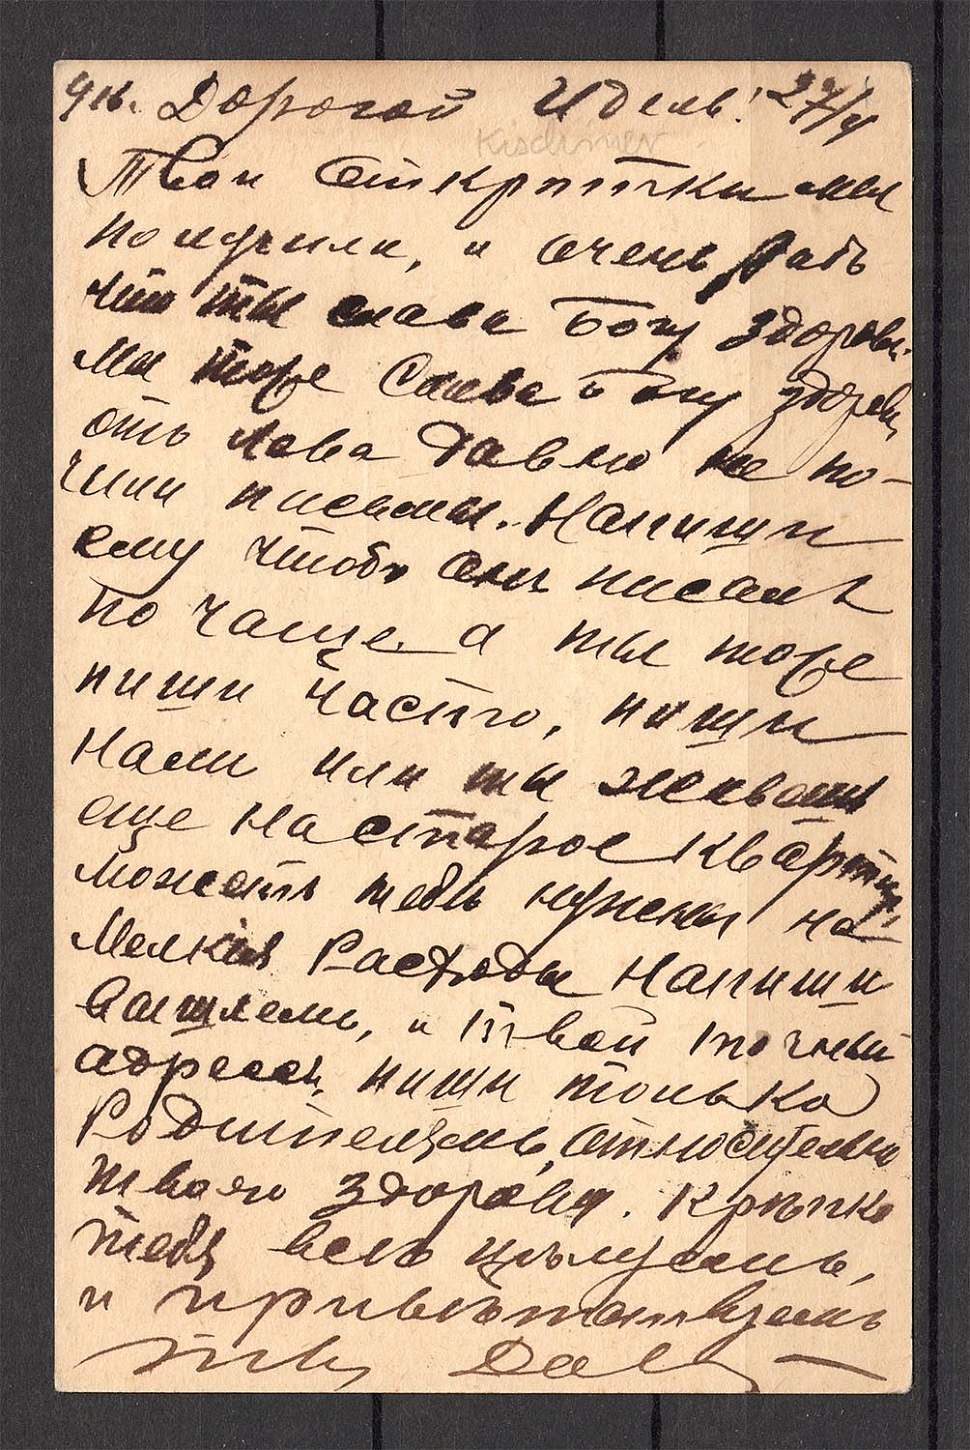 916. Дорогой Идель! 27/V
Kischinev
Твои открытки мы
получили, и очень рады
что ты слава Богу здоровы.
Мы тоже Слава Богу здоровы,
отъ Лева давно не по-
чили письмы. Напиши
ему чтобы онъ писалъ
по чаще. а ты тоже
пиши часто, пиши
нами или ты живешъ
еще на старое квартиру,
можетъ тебѣ нужны на
Мелкия Расходы Напиши
вышлемъ, и твой точный
адресъ, пиши только
Родителямъ, относительно
твоего здоровя. Крѣпко
тебя всего цѣлуемъ,
и